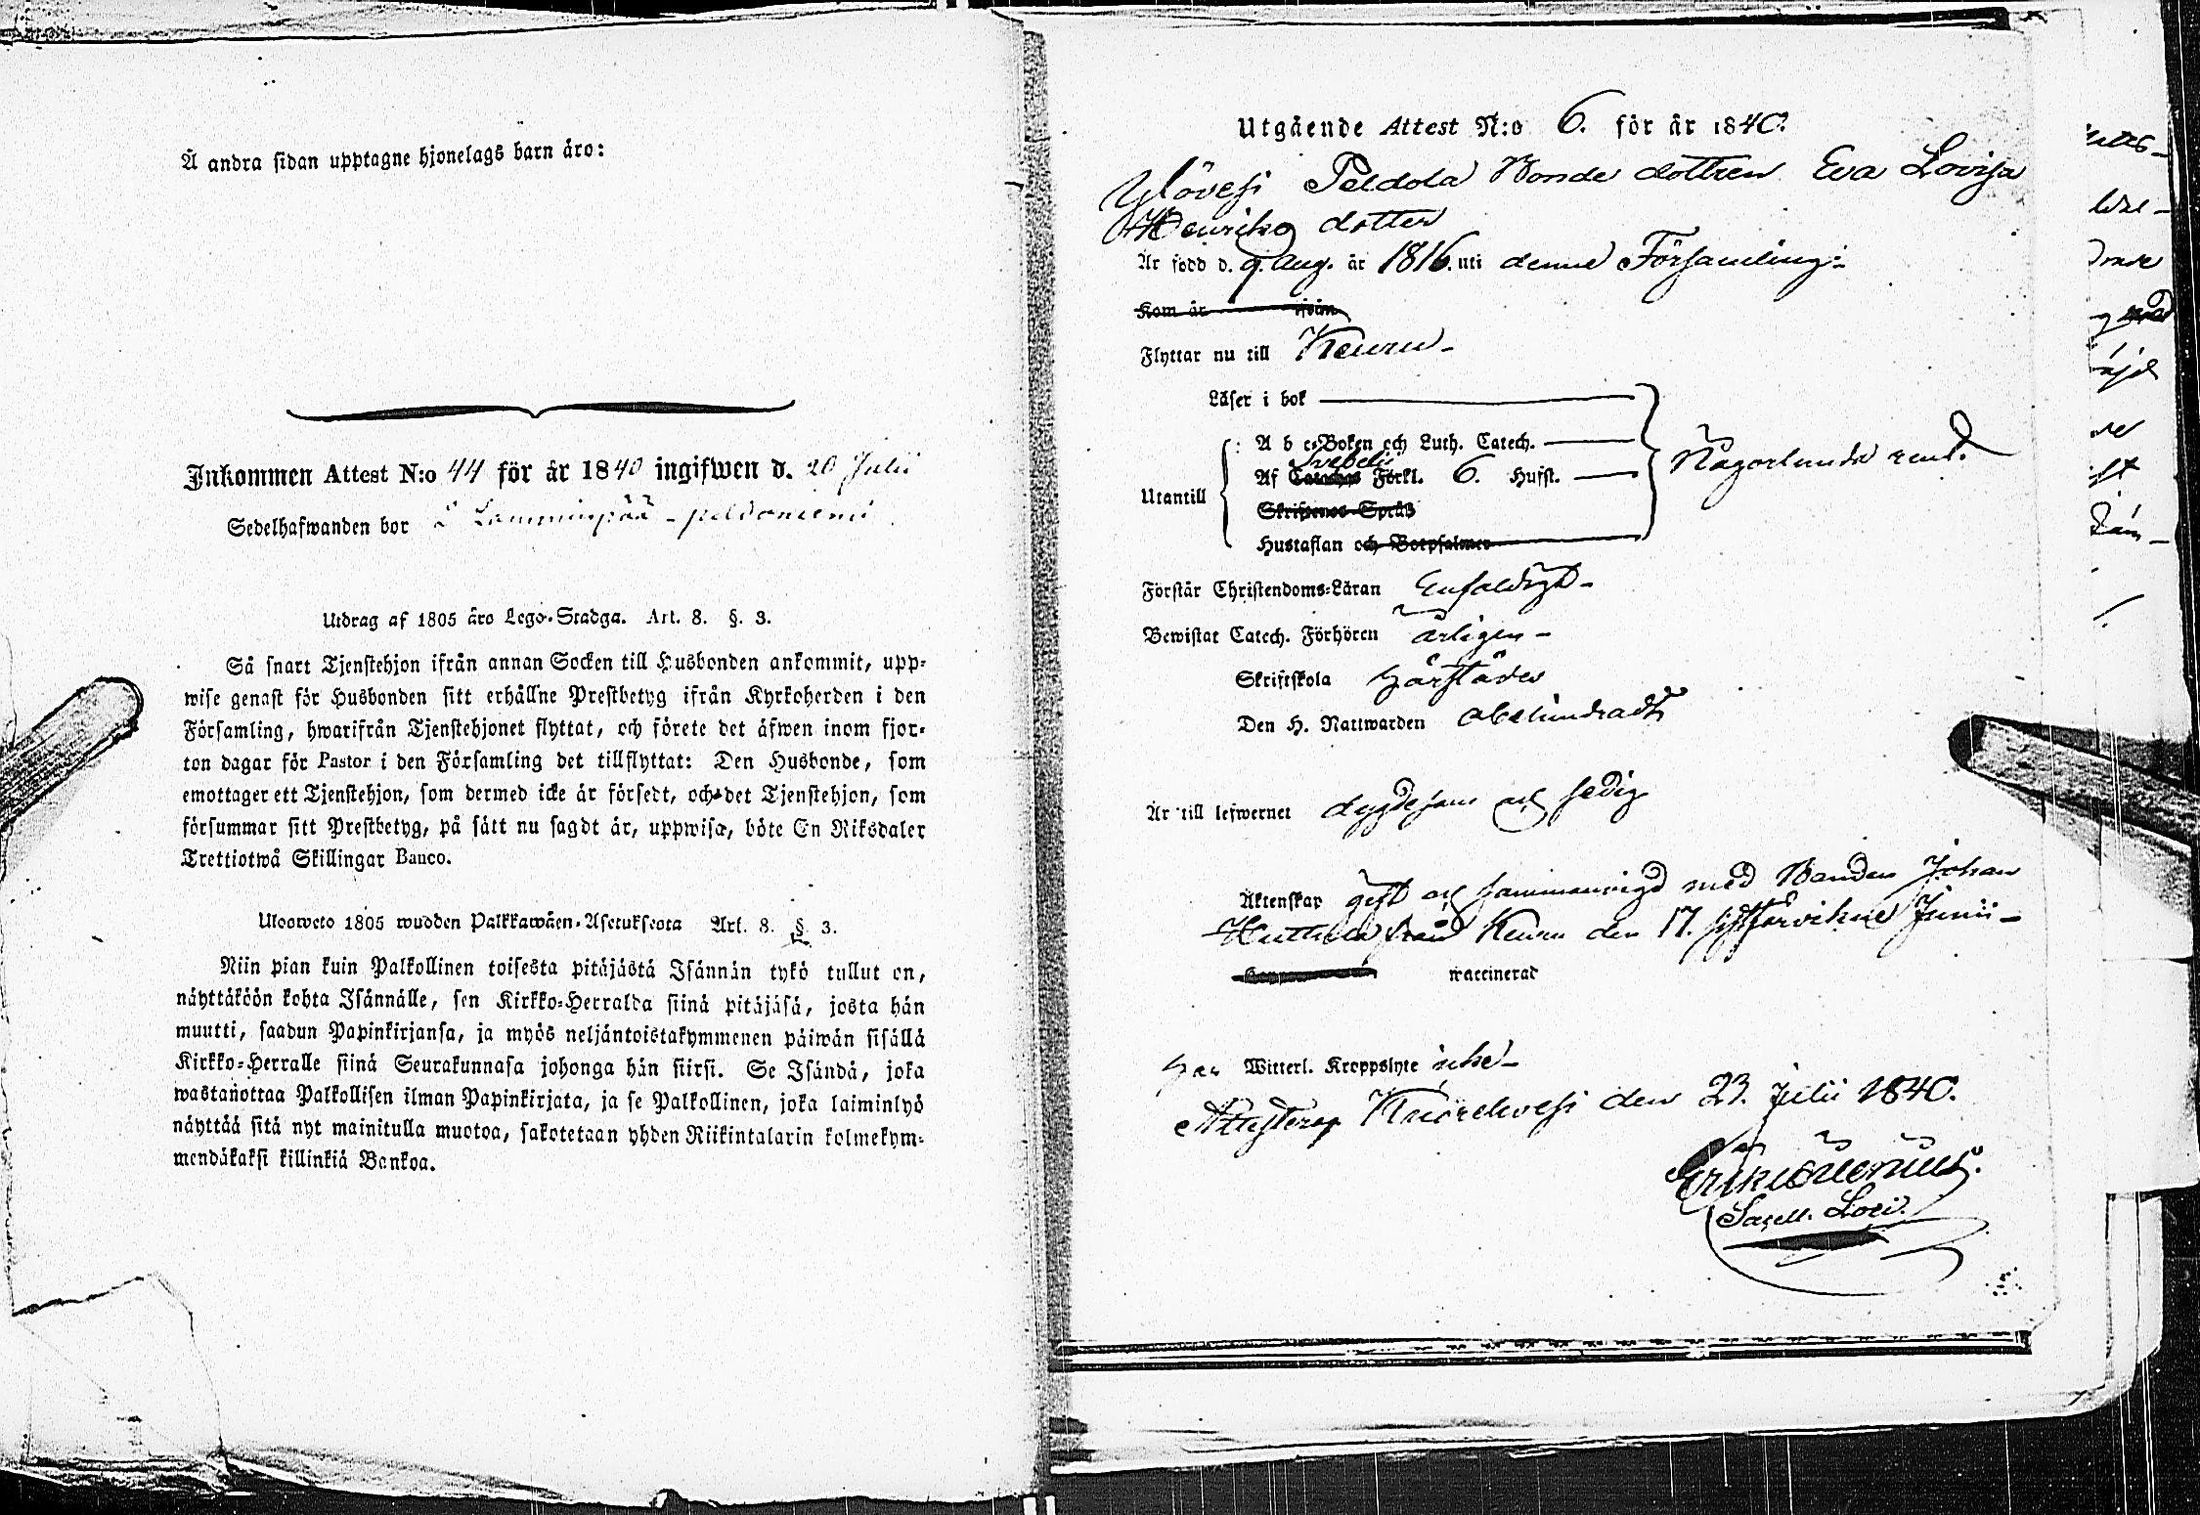 Å andra sidan upptagne hjonelags barn äro:
Inkommen Attest N:o 44 för år 1840 ingifwen d. 20 Julii
Sedelhafwanden bor
Utdrag af 1805 års Lego-Stadga. Art. 8. §. 3.
Så snart Tjenstehjon ifrån annan Socken till Husbonden ankommit, upp-
wise genast för Husbonden sitt erhållne Prestbetyg ifrån Kyrkoherden i den
Församling, hwarifrån Tjenstehjonet flyttat, och förete det äfwen inom fjor-
ton dagar för Pastor i den Församling det tillflyttat: Den Husbonde, som
emottager ett Tjenstehjon, som dermed icke är försedt, och det Tjenstehjon, som
försummar sitt Prestbetyg, på sätt nu sagdt är, uppwisa, böte En Riksdaler
Trettiotwå Skillingar Banco.
Ulosweto 1805 wuoden Palkkawäen-Asetuksesta Art. 8. §. 3.
Niin pian kuin Palkollinen toisesta pitäjästä Isännän tykö tullut on,
näyttäköön kohta Isännälle, sen Kirkko-Herralda siinä pitäjäsä, josta hän
muutti, saadun Papinkirjansa, ja myös neljäntoistakymmenen päiwän sisällä
Kirkko-Herralle siinä Seurakunnasa johonga hän siirsi. Se Isändä, joka
wastanottaa Palkollisen ilman Papinkirjata, ja se Palkollinen, joka laiminlyö
näyttää sitä nyt mainitulla muotoa, sakotetaan yhden Riikintalarin kolmekym-
mendäkaksi killinkiä Bankoa.
Utgående Attest N:o 6. för år 1840.
Peldola Bonde dottren Eva Lovisa
Henriks dotter
Är född d. 9. Aug. år 1816. uti denne Församling:
Kom år ifrån
Flyttar nu till Keuru-
Läser i bok
A b c-Boken och Luth. Catech.
Svebelii
Utantill Af Catechet Förkl. 6. Husst. Någorlunda rent.
Skriftenes Språk
Hustaflan och Botpsalmer
Förstår Christendoms-Läran Enfaldigt-
Bewistat Catech. Förhören årligen-
Skriftskola härstädes
Den H. Nattwarden obehindradt
Är till lefwernet dygdesam och sedig
Äktenskap gift och sammanvigd med Bonden Johan
från Keuru den 17. sistförvikne Junii-
waccinerad
Har Witterl. Kroppslyte icke-
Attesterar Kuorehvesi den 23. Julii 1840.
Sacell. Loci.